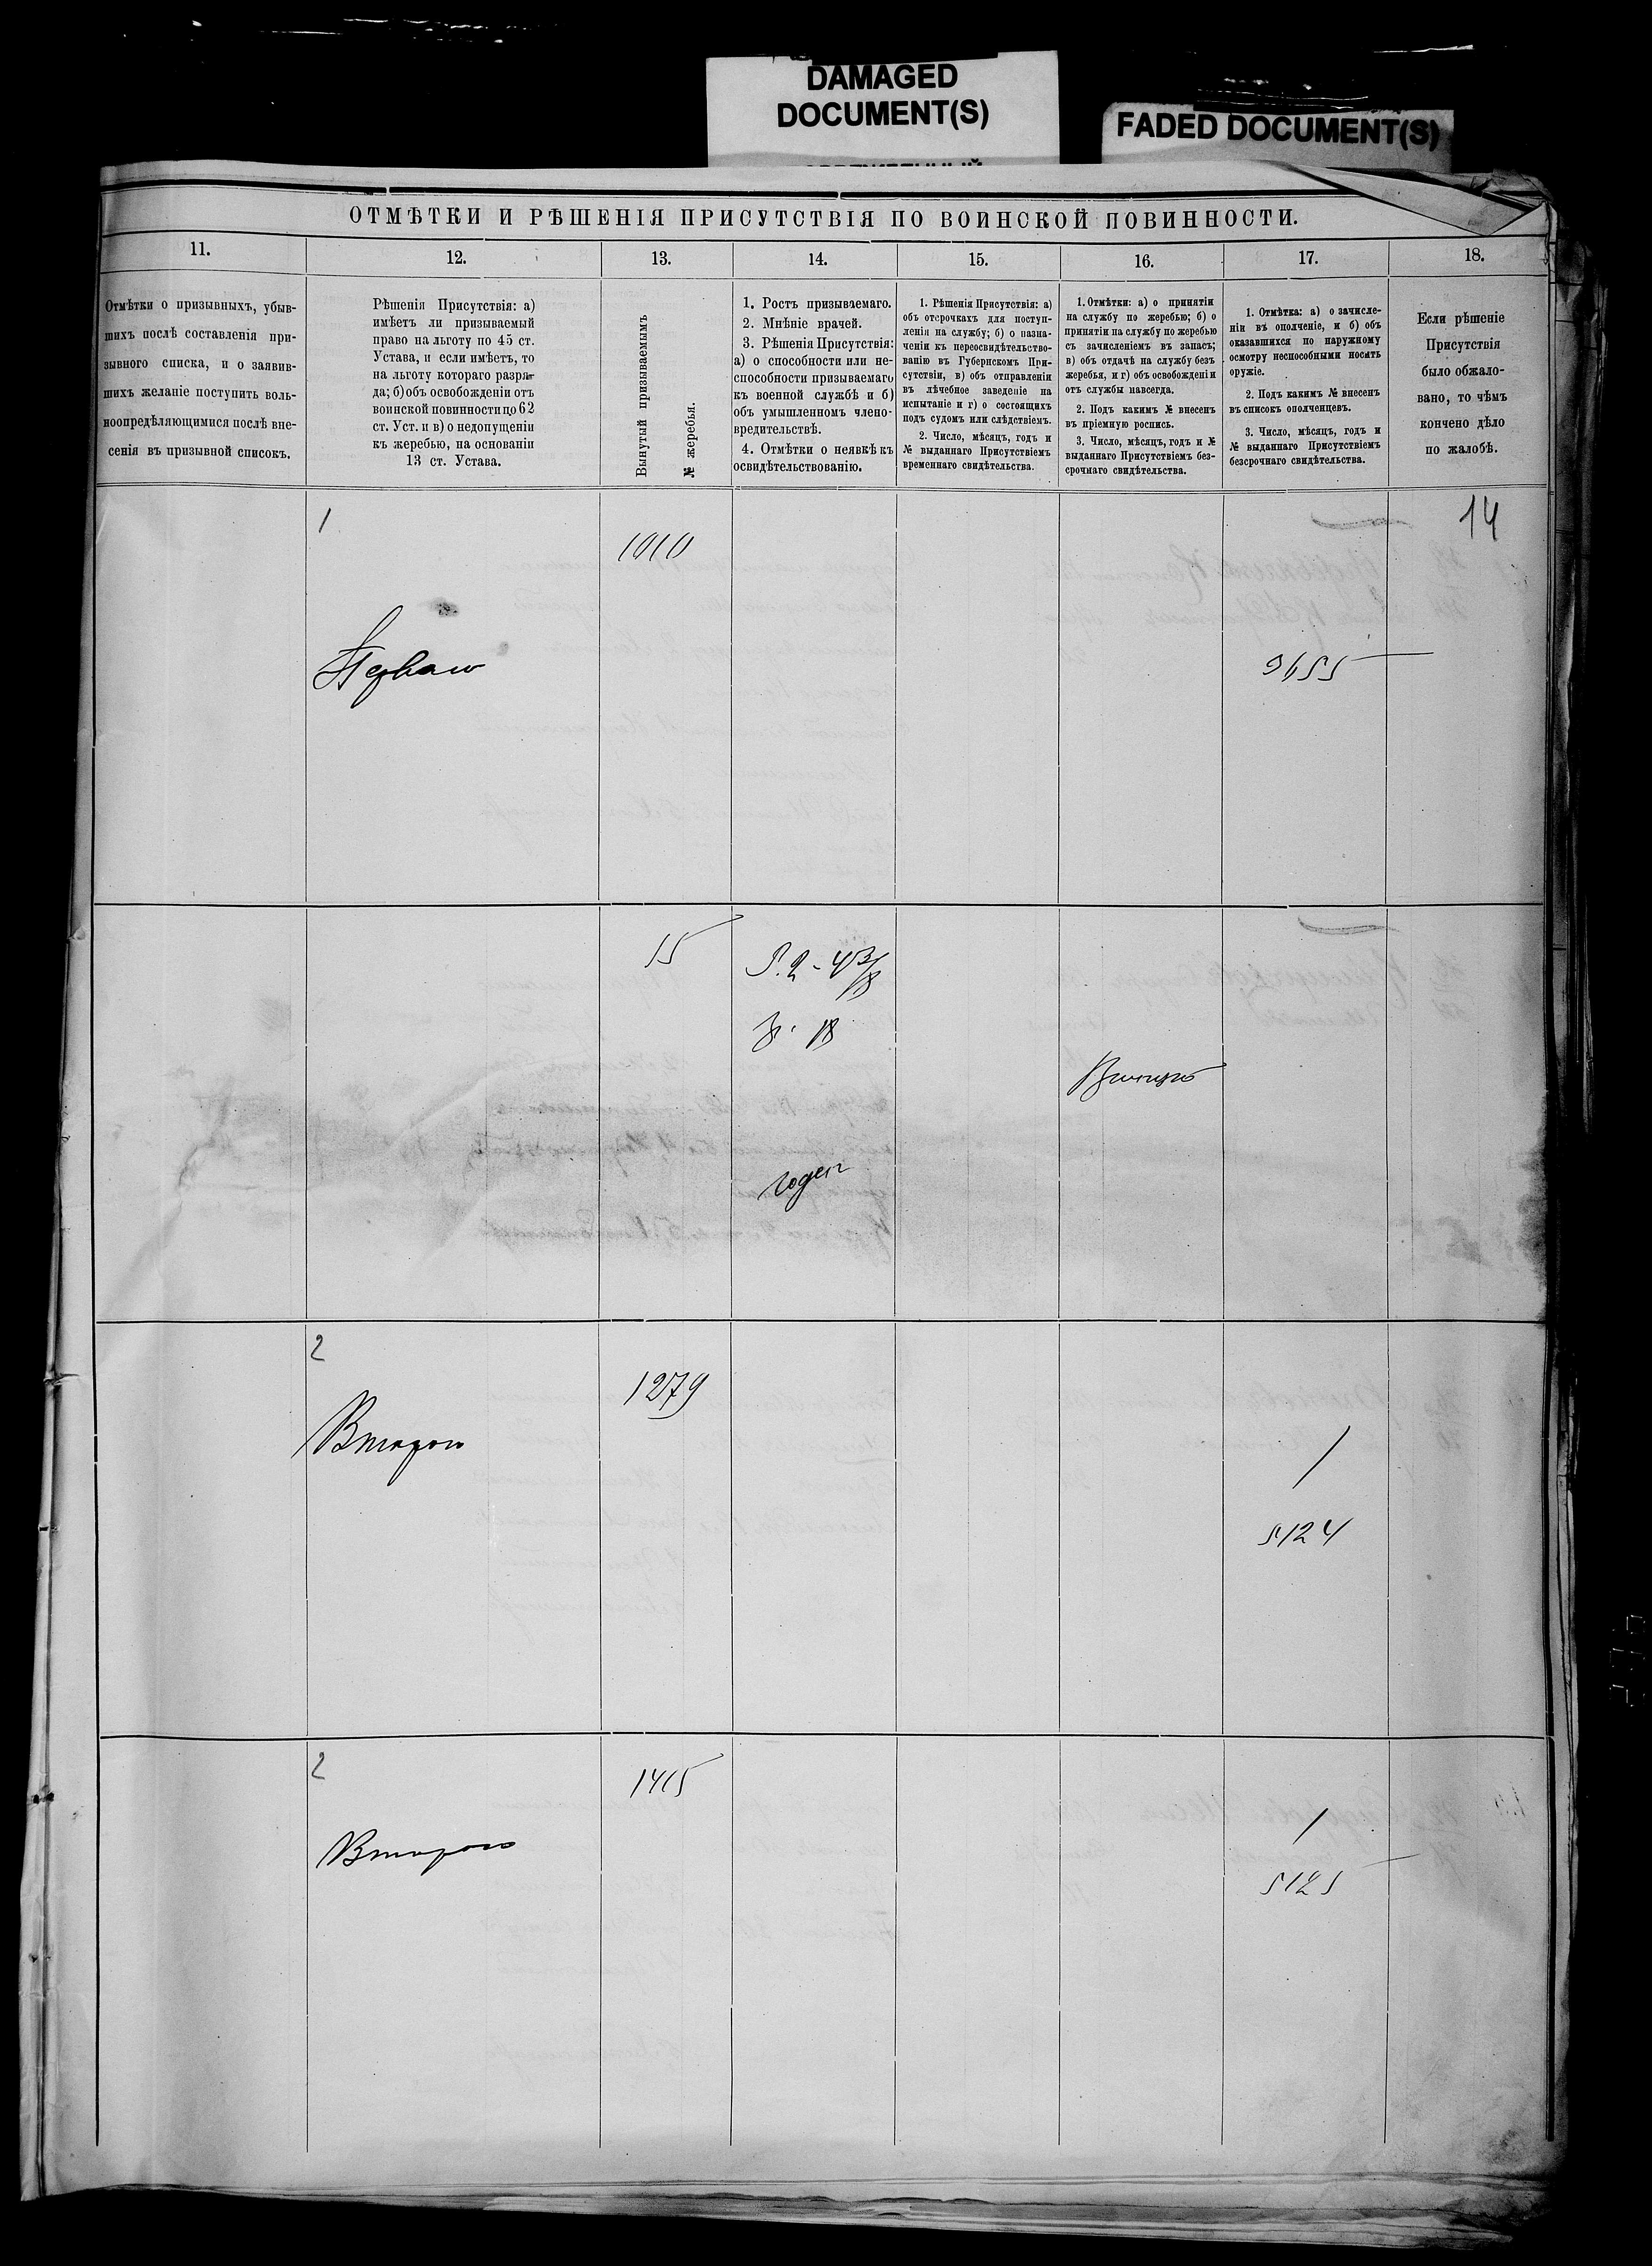 DAMAGED
DOCUMENT(S)
FADED DOCUMENT(S)
ОТМѢТКИ И РѢШЕНІЯ ПРИСУТСТВІЯ ПО ВОИНСКОЙ ПОВИННОСТИ.
11.
12.
13.
14.
15.
16.
17.
18.
Отмѣтки о призывныхъ, убыв-
шихъ послѣ составленія при-
зывного списка, и о заявив-
шихъ желаніе поступить воль-
ноопредѣляющимися послѣ вне-
сенія въ призывной списокъ.
Рѣшенія Присутствія: а)
имѣетъ ли призываемый
право на льготу по 45 ст.
Устава, и если имѣетъ, то
на льготу котораго разря-
да; б) объ освобожденіи отъ
воинской повинности по 62
ст. Уст. и в) о недопущеніи
къ жеребью, на основаніи
13 ст. Устава.
Вынутый призываемымъ
№ жеребья.
1. Ростъ призываемаго.
2. Мнѣніе врачей.
3. Рѣшенія Присутствія:
а) о способности или не-
способности призываемаго
къ военной службѣ и б)
объ умышленномъ члено-
вредительствѣ.
4. Отмѣтки о неявкѣ къ
освидѣтельствованію.
1. Рѣшенія Присутствія: а)
объ отсрочкахъ для поступ-
ленія на службу; б) о назна-
ченіи къ переосвидѣтельство-
ванію въ Губернскомъ При-
сутствіи, в) объ отправленіи
въ лѣчебное заведеніе на
испытаніе и г) о состоящихъ
подъ судомъ или слѣдствіемъ.
2. Число, мѣсяцъ, годъ и
№ выданнаго Присутствіемъ
временнаго свидѣтельства.
1. Отмѣтки: а) о принятіи
на службу по жеребью; б) о
принятіи на службу по жеребью
съ зачисленіемъ въ запасъ;
в) объ отдачѣ на службу безъ
жеребья, и г) объ освобожденіи
отъ службы навсегда.
2. Подъ какимъ № внесенъ
въ пріемную роспись.
3. Число, мѣсяцъ, годъ и №
выданнаго Присутствіемъ без-
срочнаго свидѣтельства.
1. Отмѣтка: а) о зачисле-
ніи въ ополченіе, и б) объ
оказавшихся по наружному
осмотру неспособными носить
оружіе.
2. Подъ какимъ № внесенъ
въ списокъ ополченцевъ.
3. Число, мѣсяцъ, годъ и
№ выданнаго Присутствіемъ
безсрочнаго свидѣтельства.
Если рѣшеніе
Присутствія
было обжало-
вано, то чѣмъ
кончено дѣло
по жалобѣ.
14
1
1010
Первого
15
годен
2
1279
Второго
/
5124
2
1415
Второго
/
5125